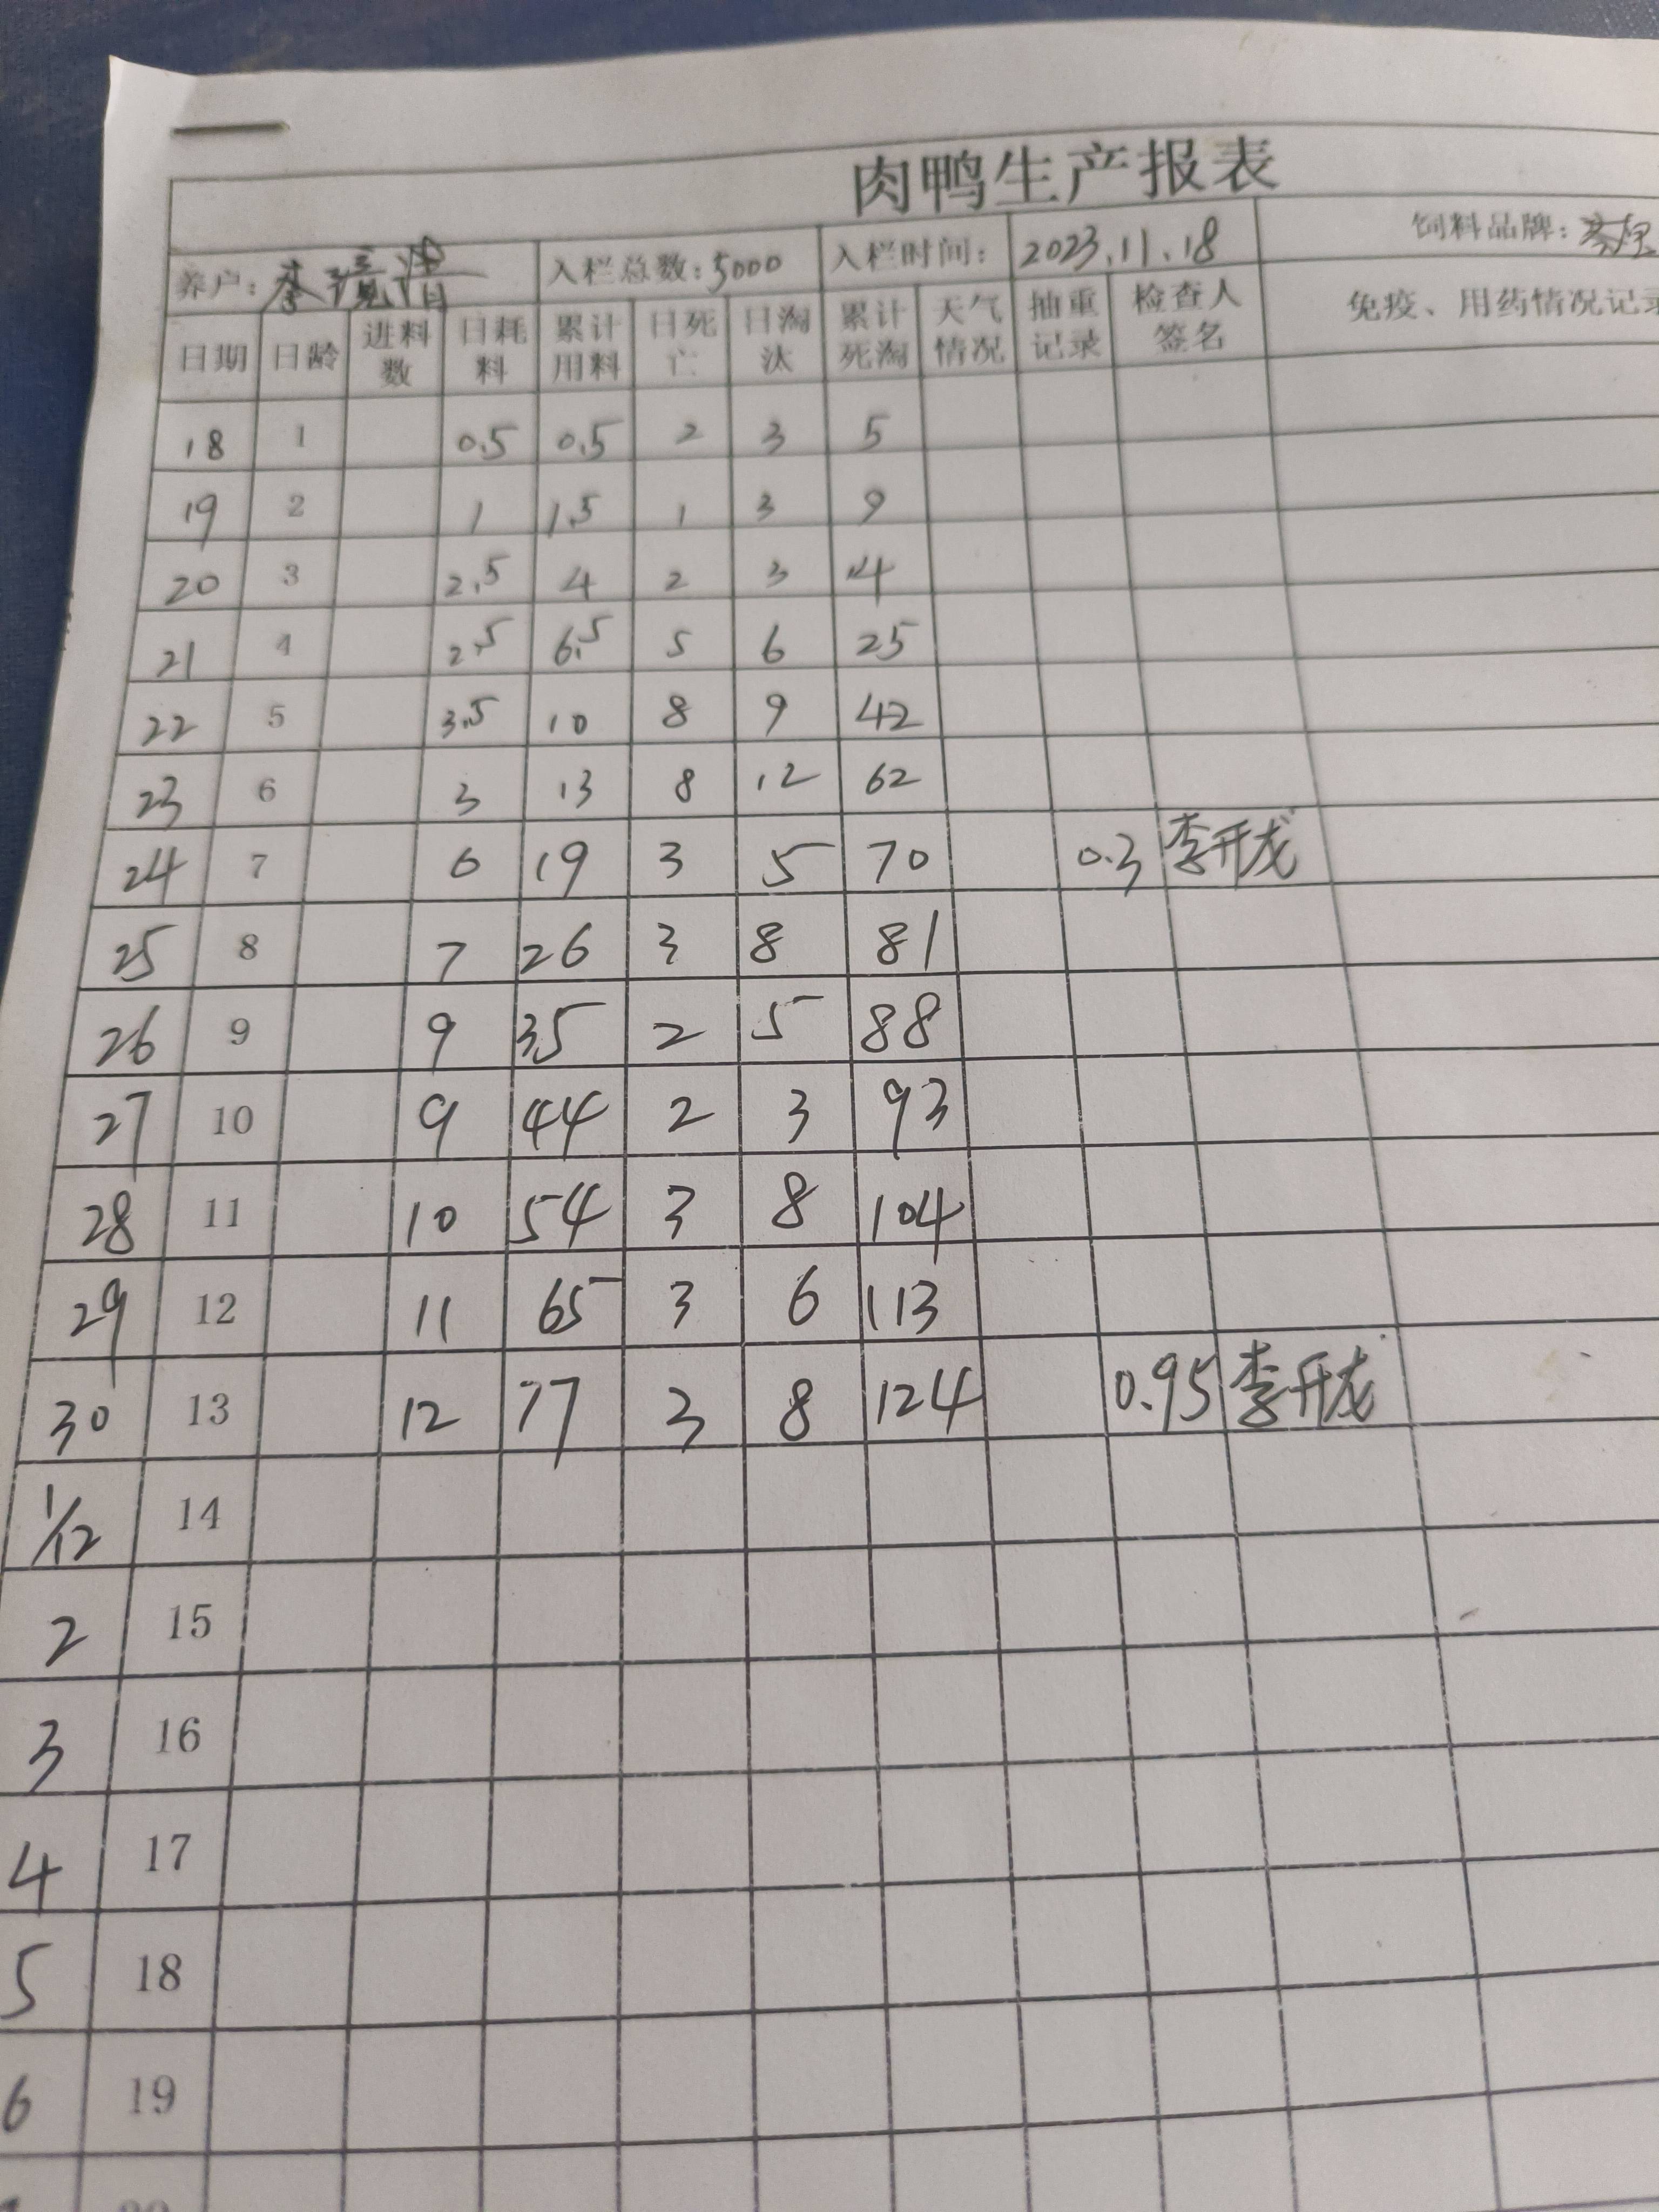 肉鸭生产报表
养户: 李 入栏总数: 5000 入栏时间: 2023.11.18 饲料品牌:
日期 日龄 进料数 日耗料 累计用料 日死亡 日淘汰 累计死淘 天气情况 抽重记录 检查人签名 免疫、用药情况记录
18 1 0.5 0.5 2 3 5
19 2 1 1.5 1 3 9
20 3 2.5 4 2 3 14
21 4 2.5 6.5 5 6 25
22 5 3.5 10 8 9 42
23 6 3 13 8 12 62
24 7 6 19 3 5 70 0.3 李开龙
25 8 7 26 3 8 81
26 9 9 35 2 5 88
27 10 9 44 2 3 93
28 11 10 54 3 8 104
29 12 11 65 3 6 113
30 13 12 77 3 8 124 0.95 李开龙
1/12 14
2 15
3 16
4 17
5 18
6 19